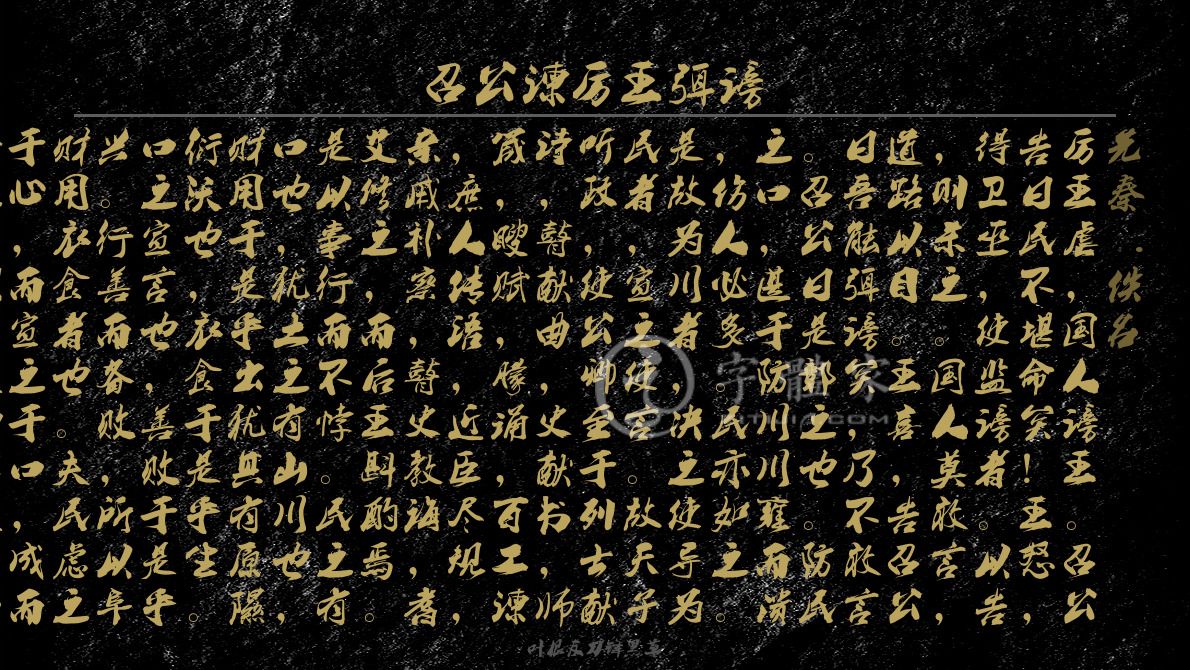 召公谏厉王弭谤
先秦·佚名
厉王虐，国人谤王。召公
告曰民不堪命矣！王怒，
得卫巫，使监谤者。以告
，则杀之。国人莫敢言，
道路以目。王喜，告召公
曰吾能弭谤矣，乃不敢言
。召公曰是鄣之也。防民
之口，甚于防川，川壅而溃
，伤人必多，民亦如之。
是故为川者，决之使导为
民者，宣之使言。故天子
听政，使公卿至于列士献
诗，瞽献曲，史献书，师
箴，瞍赋，矇诵，百工谏
，庶人传语，近臣尽规，
亲戚补察，瞽史教诲，耆
艾修之，而后王斟酌焉。
是以事行而不悖。民之有
口也，犹土之有山川也，
财用于是乎出犹其有原隰
衍沃也，衣食于是乎生。
口之宣言也，善败于是乎
兴。行善而备败，所以阜
财用衣食者也。夫民虑之
于心，而宣之于口，成而
字體家
叶根友刀锋黑草